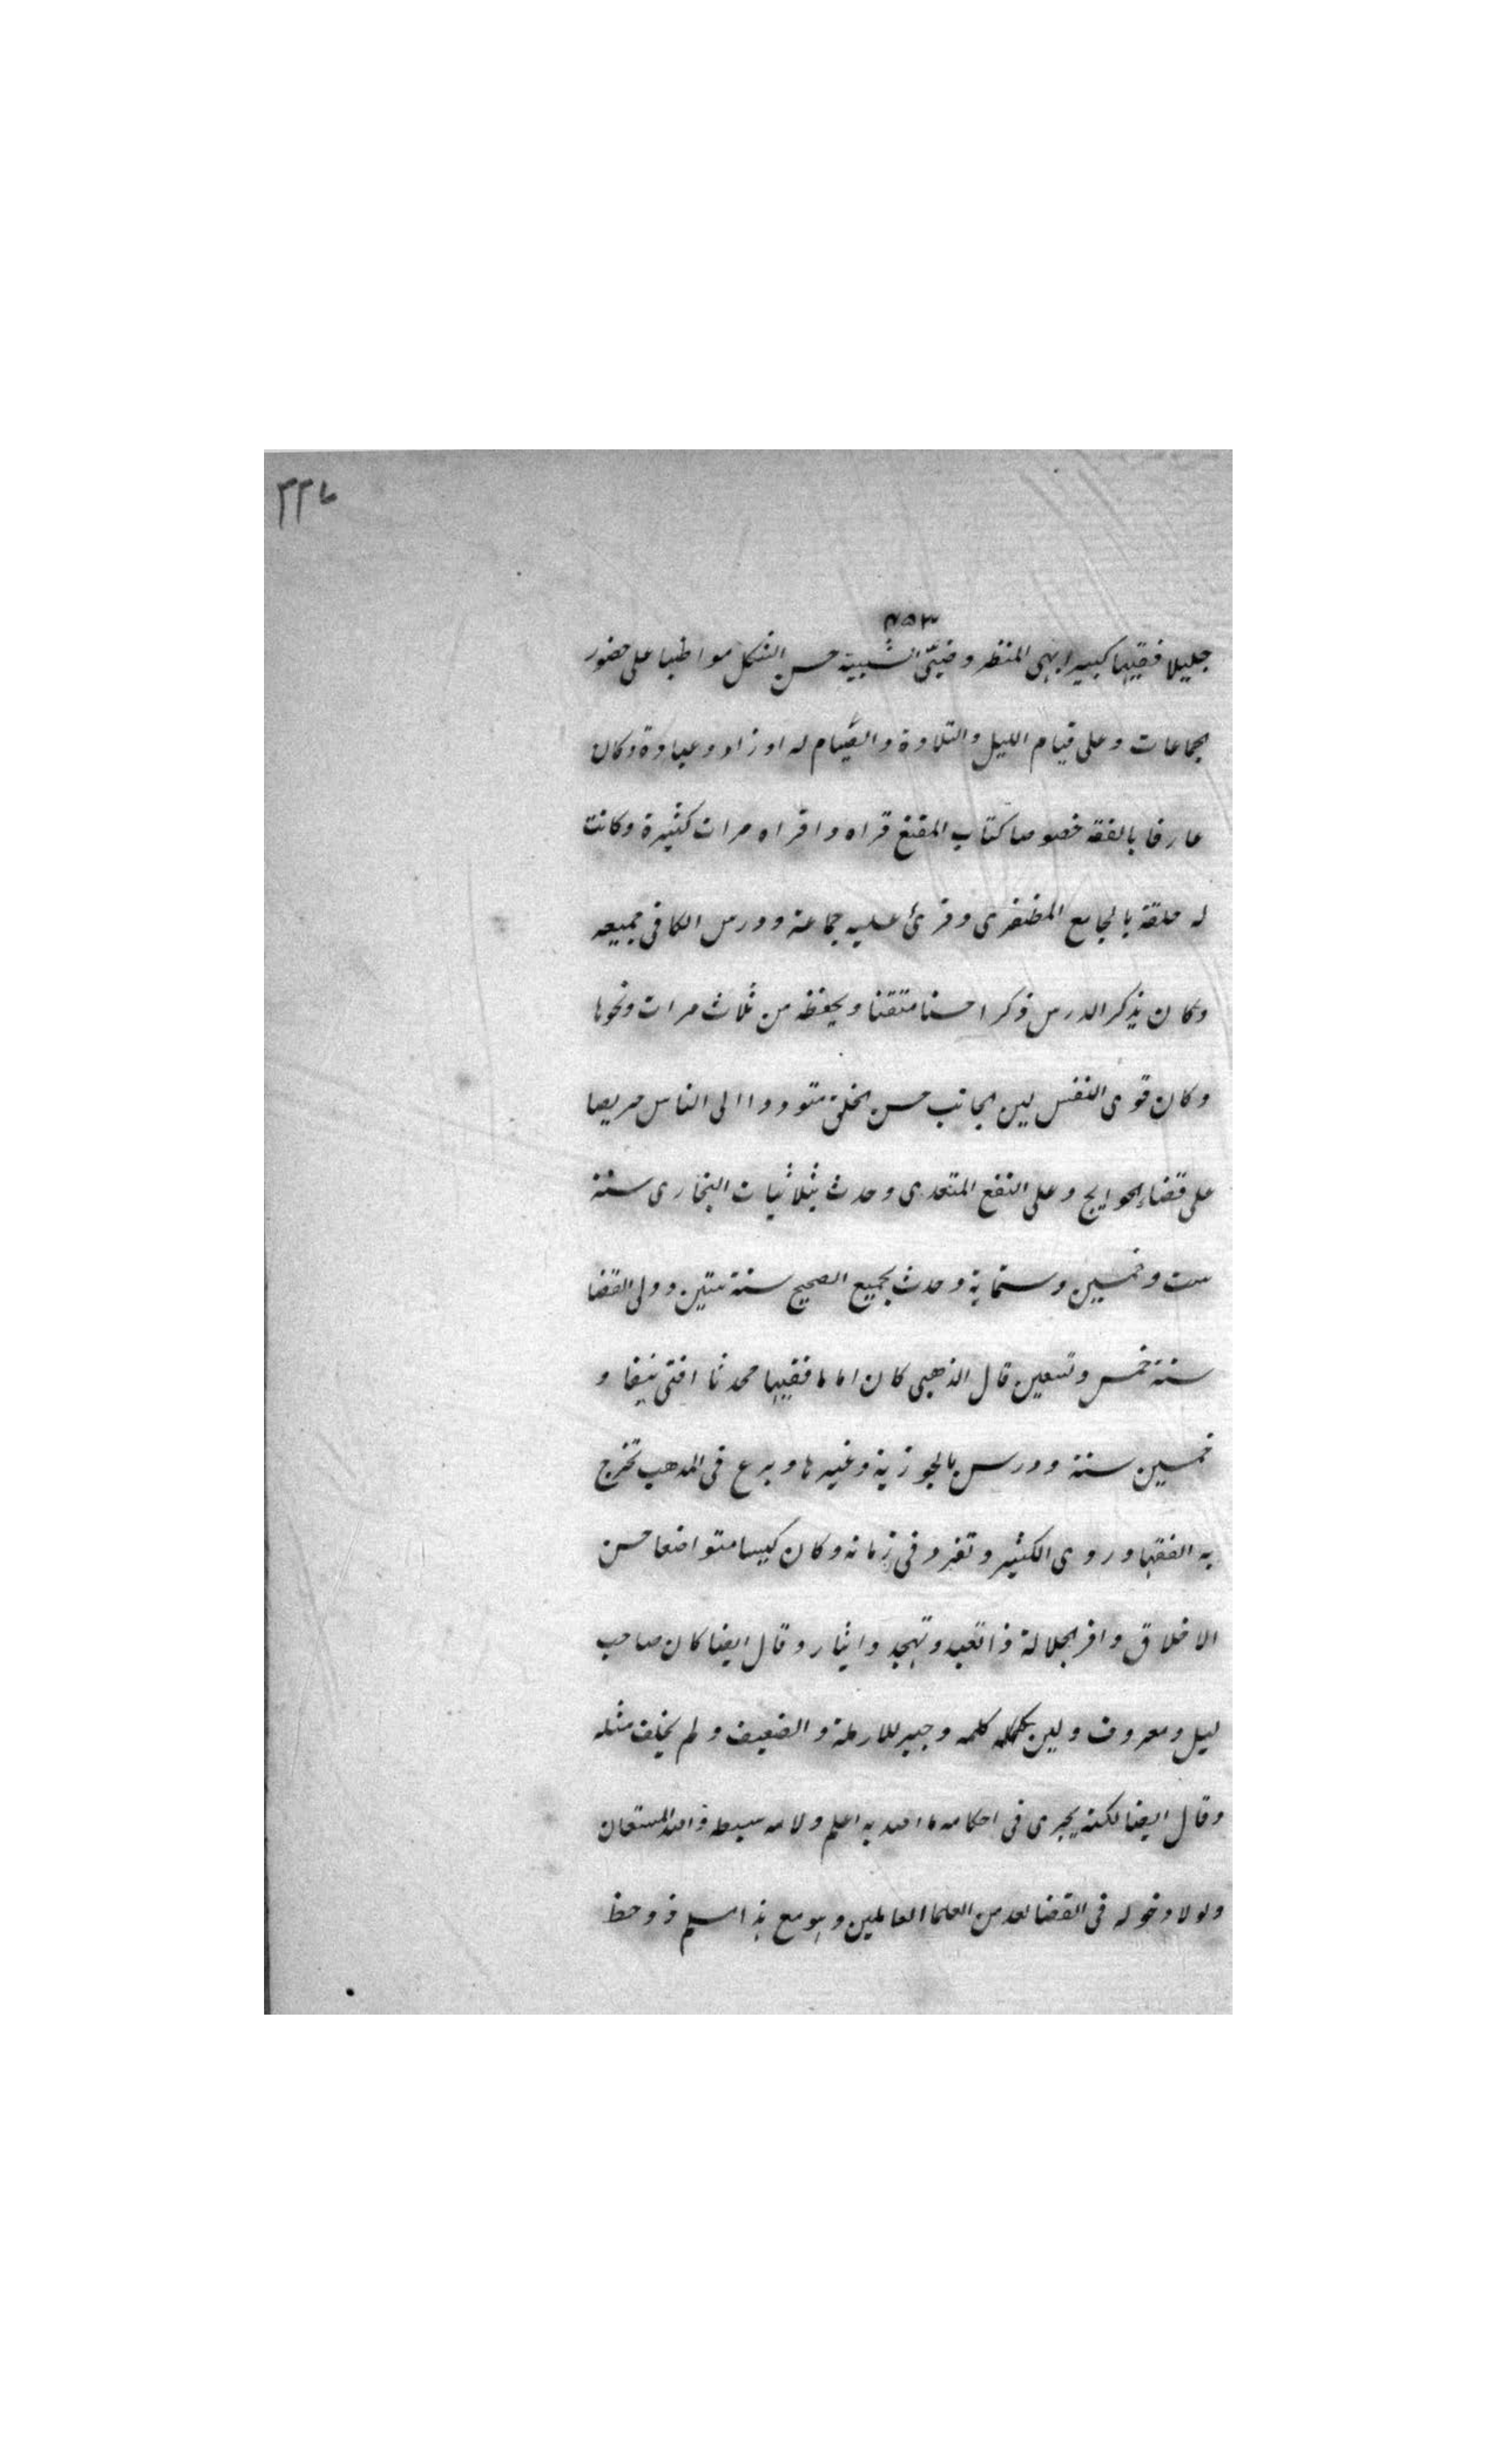 ٢٢٧
٧٥٣
جليلا فقيها كبيرا بهى المنظر وضيّئ الشيبة حسن الشكل مواظبا على حضور
الجماعات وعلى قيام الليل والتلاوة والصّيام له اوراد وعبادة وكان
عارفا بالفقه خصوصا كتاب المقنع قراه واقراه مرات كثيرة وكانت
له حلقة بالجامع المظفرى وقرئ عليه جماعة ودرس الكافى جميعه
وكان يذكر الدرس ذكرا حسنا متقنا ويحفظه من ثلاث مرات ونحوها
وكان قوى النفس لين الجانب حسن الخلق متوددا الى الناس حريصا
على قضاء الحوايج وعلى النفع المتعدى وحدث بثلاثيات البخارى سنة
ست وخمسين وستماية وحدث بجميع الصحيح سنة ستين وولى القضا
سنة خمس وتسعين قال الذهبى كان اماما فقيها محدثا افتى نيفا و
خمسين سنة ودرس بالجوزية وغيرها وبرع فى المذهب تخرج
به الفقها وروى الكثير وتفرد فى زمانه وكان كيسا متواضعا حسن
الاخلاق وافر الجلالة ذا تعبد وتهجد وايثار وقال ايضا كان صاحب
ليل ومعروف ولين كلمه وجبر للارملة والضعيف ولم يخلف مثله
وقال ايضا لكنه يجرى فى احكامه ما الله به اعلم والله المستعان
ولولا دخوله فى القضا لعد من العلما العاملين وهو مع هذا مسلم ذو حظ